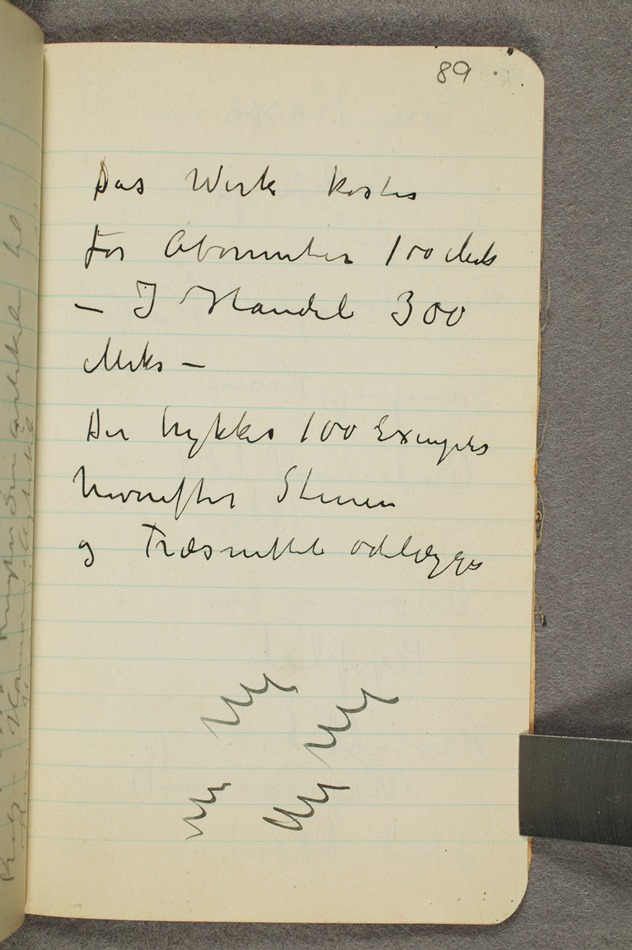 89
Das Werk kostes
For Abonnenten 100 Mark
– I Handel 300
Marks –
Der trykkes 100 Exempls
hvorefter Stenen
og Træsnittet odelægges